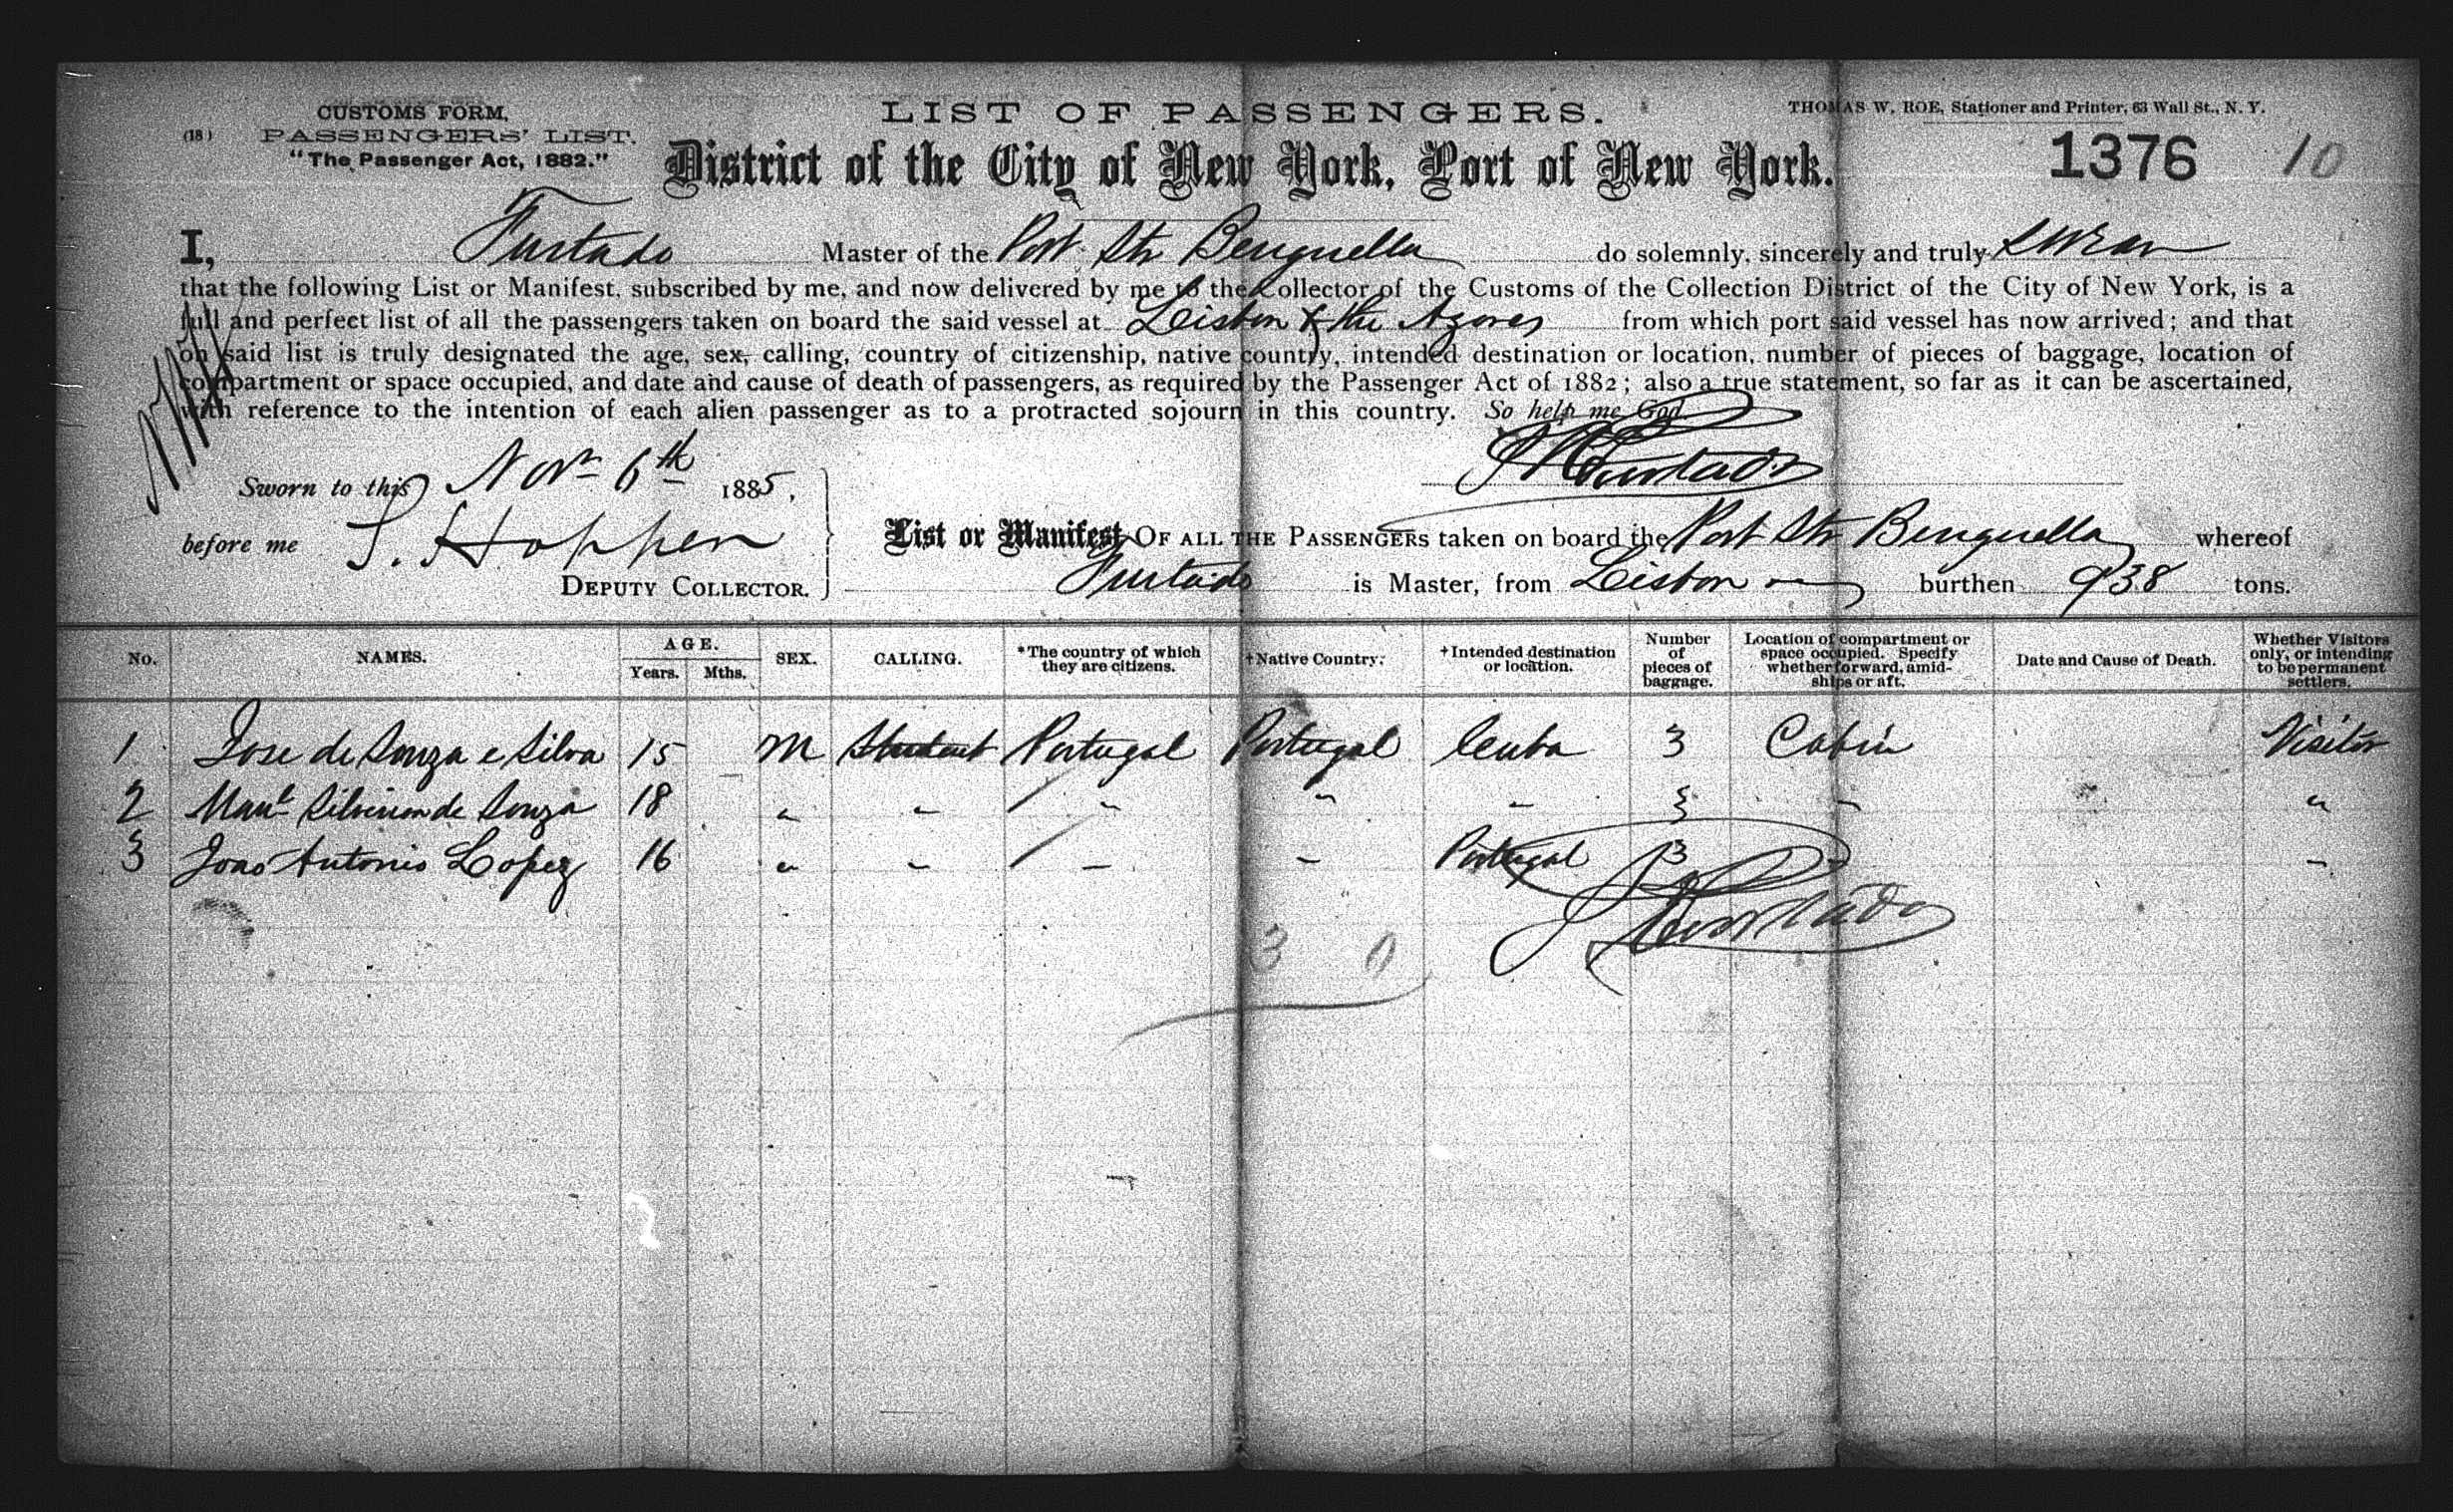 CUSTOMS FORM,
(18) PASSENGERS' LIST.
"The Passenger Act, 1882."
LIST OF PASSENGERS.
THOMAS W. ROE, Stationer and Printer, 63 Wall St., N. Y.
District of the City of New York, Port of New York.
1376 10
I, Furtado Master of the Port. Str Benguella do solemnly, sincerely and truly swear
that the following List or Manifest, subscribed by me, and now delivered by me to the Collector of the Customs of the Collection District of the City of New York, is a
full and perfect list of all the passengers taken on board the said vessel at Lisbon & the Azores from which port said vessel has now arrived; and that
on said list is truly designated the age, sex, calling, country of citizenship, native country, intended destination or location, number of pieces of baggage, location of
compartment or space occupied, and date and cause of death of passengers, as required by the Passenger Act of 1882; also a true statement, so far as it can be ascertained,
with reference to the intention of each alien passenger as to a protracted sojourn in this country. So help me God
Furtado
Sworn to this Novr 6th 1885,
before me S. Hoppen
DEPUTY COLLECTOR.
List or Manifest OF ALL THE PASSENGERS taken on board the Port Str Benguella whereof
Furtado is Master, from Lisbon burthen 938 tons.
No. NAMES. AGE. Years. Mths. SEX. CALLING. *The country of which they are citizens. +Native Country. +Intended destination or location. Number of pieces of baggage. Location of compartment or space occupied. Specify whether forward, amidships or aft. Date and Cause of Death. Whether Visitors only, or intending to be permanent settlers.
1 Jose de Souza e Silva 15 M Student Portugal Portugal Cuba 3 Cabin Visitor
2 Manl de Souza 18 " " " " " 3 " "
3 Joao Antonio Lopez 16 " " " " Portugal 3 " "
Furtado
3 0